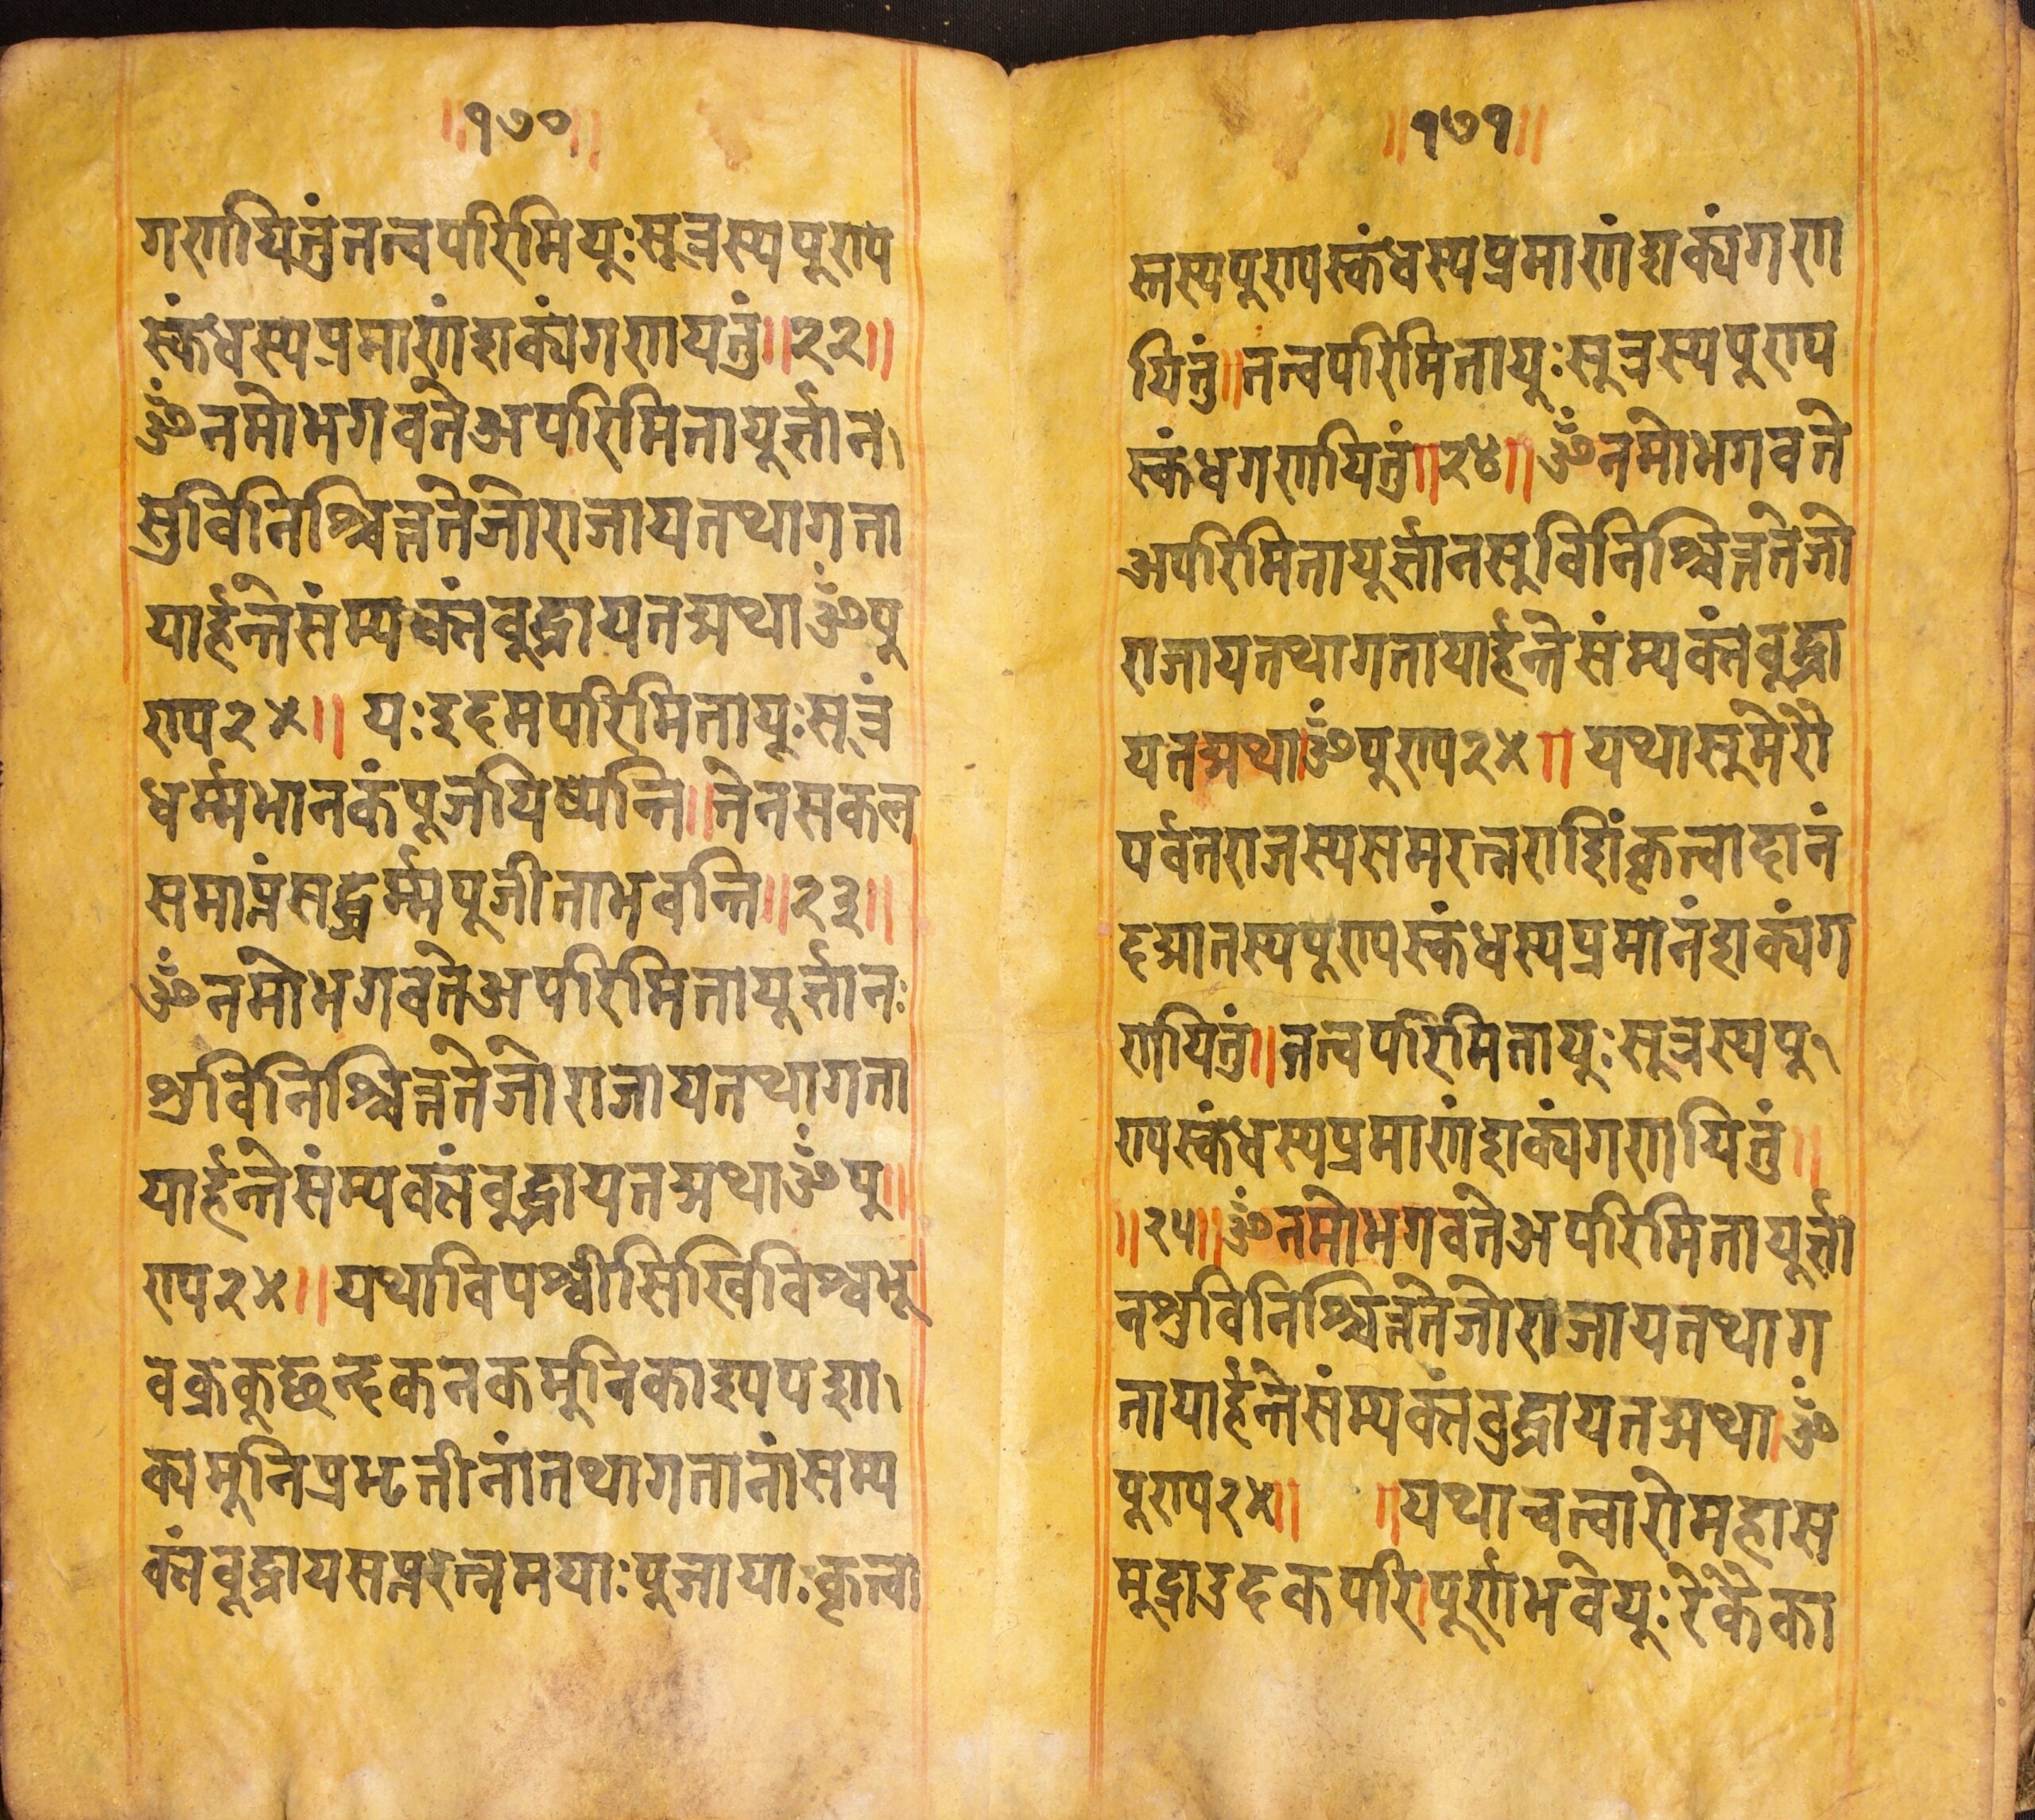 ॥१७०॥
गणयितुंनत्वपरिमियुःसूत्रस्यपूण्य
स्कंधस्यप्रमाणंशक्यंगणयतुं॥२२॥
ॐनमोभगवतेअपरिमितायूर्ज्ञान
सुविनिश्चिन्नतेजोराजायतथागता
यार्हन्तेसंम्यक्तंबुद्धायतद्यथाॐपु
ण्य२४॥ यःइदमपरिमितायूःसूत्रं
धर्म्मभानकंपूजयिष्यन्ति॥तेनसकल
समाप्तंसद्धर्म्मपूजीताभवन्ति॥२३॥
ॐनमोभगवतेअपरिमितायूर्ज्ञानः
शुविनिश्चिन्नतेजोराजायतथागता
यार्हन्तेसंम्यक्तंबुद्धायतद्यथाॐपु॥
ण्य२४॥यथाविपश्वीसिखिविश्वभू
वक्रकुछन्दकनकमूनिकाश्यपशा
क्यमुनिप्रभृतीनांतथागतानांसम्य
क्तंबुद्धायसप्तरत्नमयाःपुजायाःकृत्वा
॥१७१॥
स्तस्यपुण्यस्कंधस्यप्रमाणंशक्यंगण
यितुं॥नत्वपरिमितायुःसूत्रस्यपुण्य
स्कंधगणयितुं॥२४॥ॐनमोभगवते
अपरिमितायूर्ज्ञानसुविनिश्चिन्नतेजो
राजायतथागतायार्हन्तेसंम्यक्तंबुद्धा
यतद्यथाॐपुण्य२४॥यथासुमेरौ
पर्वतराजस्यसमरत्नराशिंकृत्वादानं
दद्यातस्यपुण्यस्कंधस्यप्रमानंशक्यंग
णयितुं॥नत्वपरिमितायुःसूत्रस्यपु
ण्यस्कंधस्यप्रमाणंशक्यंगणयितुं॥
॥२५॥ॐनमोभगवतेअपरिमितायूर्ज्ञा
नशुविनिश्चिन्नतेजोराजायतथाग
तायार्हन्तेसंम्यक्तंबुद्धायतद्यथाॐ
पुण्य२४॥ ॥यथाचत्वारोमहास
मूद्राउदकपरिपूर्णाभवेयुःरेकैका